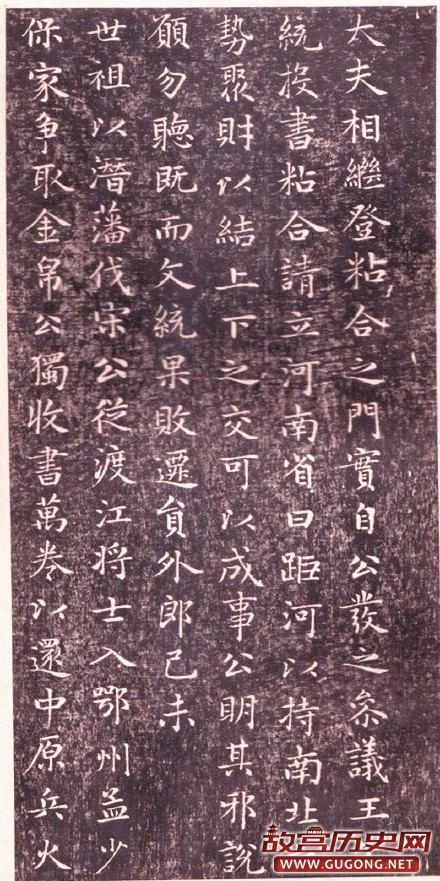 大夫相繼登粘合之門實自公發之叅議王
統投書粘合請立河南省曰距河以持南北
勢聚財以結上下之交可以成事公明其邪說
願勿聽既而文統果敗遷貟外郎己未
世祖以潛藩伐宋公從渡江将士入鄂州益少
保家争取金帛公獨收書萬卷以還中原兵火
故宫历史网
WWW.GUGONG.NET